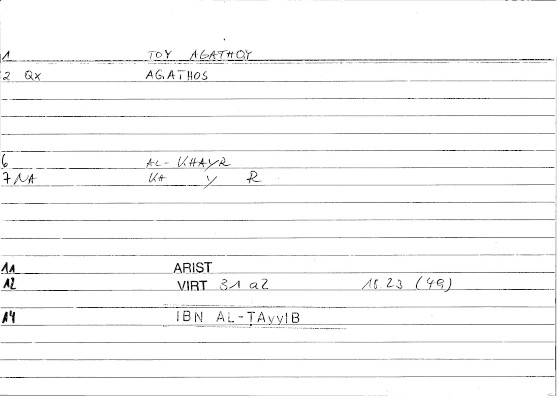 1 TOY AGATHOY
2 Qx AGATHOS
6 AL-KHAYR
7 NA KA y R
11 ARIST
12 VIRT 31 a2 18.23 (49)
14 IBN AL-ṬAyyIB